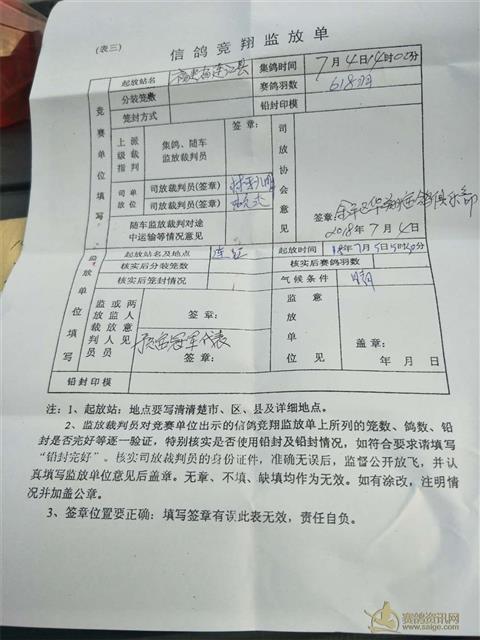 (表三)
信鸽竞翔监放单
竞赛单位填写
起放站名 福建省连江县 集鸽时间 7月4日14时02分
分装笼数 赛鸽羽数 618羽
笼封方式 铅封印模
上级指派裁判 集鸽、随车监放裁判员 签章: 司放协会意见
司单放位 司放裁判员(签章)
司放裁判员(签章)
签章:
随车监放裁判对途中运输等情况意见 2018年7月4日
监放单位填写
起放站名及地点 连江 起放时间 18年7月5日5时30分
核实后分装笼数 核实后赛鸽羽数
核实后笼封情况 气候条件 晴
监或两放监人裁放意判人见员员 签章: 监放单位意见
预备冠军代表
签章: 盖章:
年 月 日
铅封印模
注:1、起放站:地点要写清清楚市、区、县及详细地点。
2、监放裁判员对竞赛单位出示的信鸽竞翔监放单上所列的笼数、鸽数、铅
封是否完好等逐一验证,特别核实是否使用铅封及铅封情况,如符合要求请填写
“铅封完好”。核实司放裁判员的身份证件,准确无误后,监督公开放飞,并认
真填写监放单位意见后盖章。无章、不填、缺填均作为无效。如有涂改,注明情
况并加盖公章。
3、签章位置要正确:填写签章有误此表无效,责任自负。
赛鸽资讯网
www.saige.com